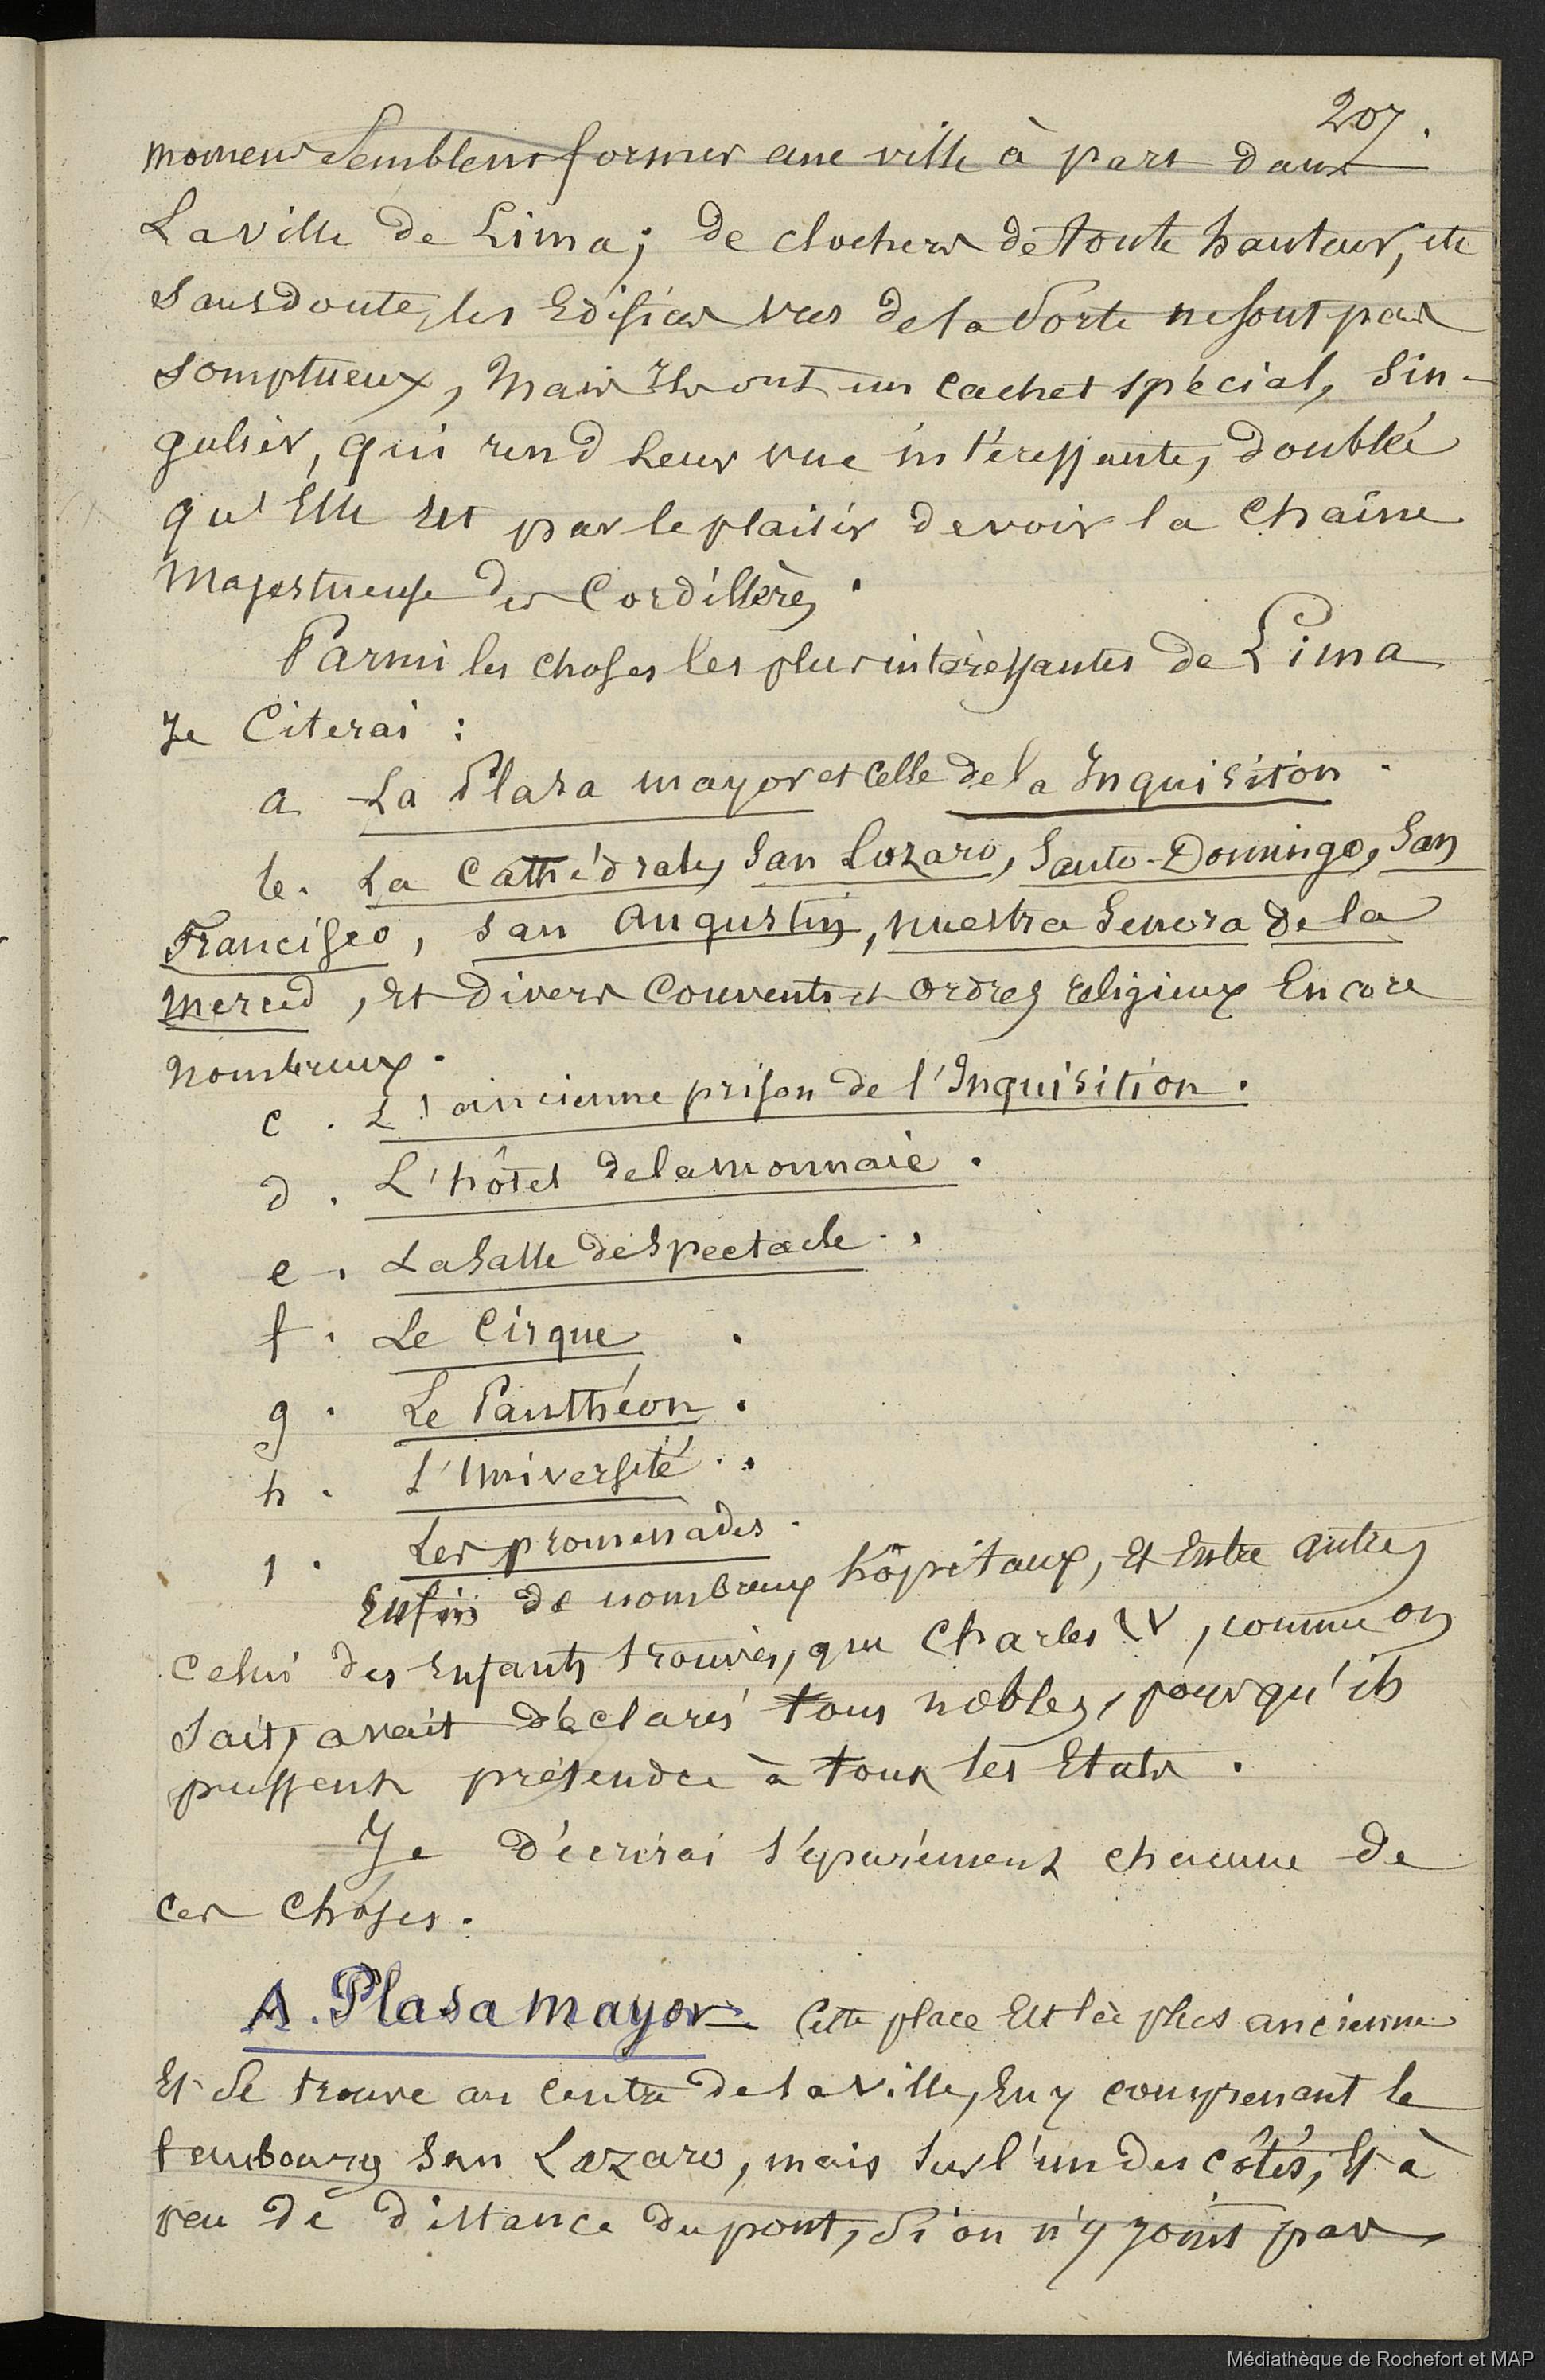 207.
momens semblent former une ville à part dans
La ville de Lima; de clochers de toute hauteur, etc
sans doute, les Edifices vus de la sorte ne sont pas
somptueux, Mais Ils ont un cachet spécial, Sin-
gulier, qui rend Leur vue intéressante, doublée
qu'Elle est par le plaisir de voir la Chaîne
Majestueuse des Cordillères.
Parmi les choses les plus intéressantes de Lima
Je Citerai :
a La Plasa mayor et Celle de la Inquisition.
b. La Cathédrale, San Lazaro, Santo-Domingo, San
Francisco, San Augustin, nuestra Senora de la
Merced, et divers Couvents et Ordres religieux Encore
Nombreux.
c. L'ancienne prison de l'Inquisition.
d. L'hôtel de la monnaie.
e. La Salle de Spectacle.
f. Le Cirque.
g. Le Panthéon.
h. L'Université.
1. Les promenades.
Enfin de nombreux hôpitaux, et Entre autres
celui des Enfants trouvés, que Charles IV, comme on
sait, avait déclarés tous nobles, pour qu'ils
pussent prétendre à tous les Etats.
Je décrirai séparément chacune de
ces Choses.
A. Plasa mayor Cette place Est la plus ancienne
Et Se trouve au centre de la ville, En y comprenant le
faubourg San Lazaro, mais Sur l'un des côtés, Et à
peu de distance du pont, Si on n'y joint pas
Médiathèque de Rochefort et MAP